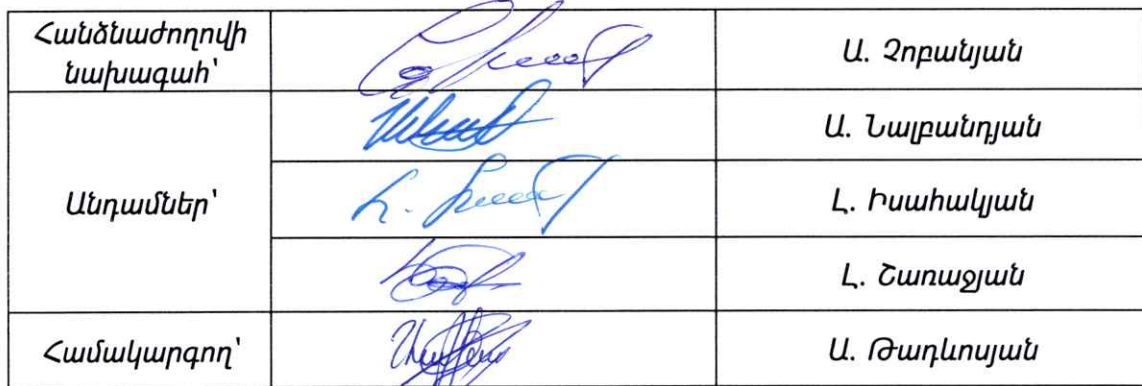 Հանձնաժողովի
նախագահ՝
Ա. Չոբանյան
Անդամներ՝
Ա. Նալբանդյան
Լ. Իսահակյան
Լ. Շառաջյան
Համակարգող՝
Ա. Թադևոսյան